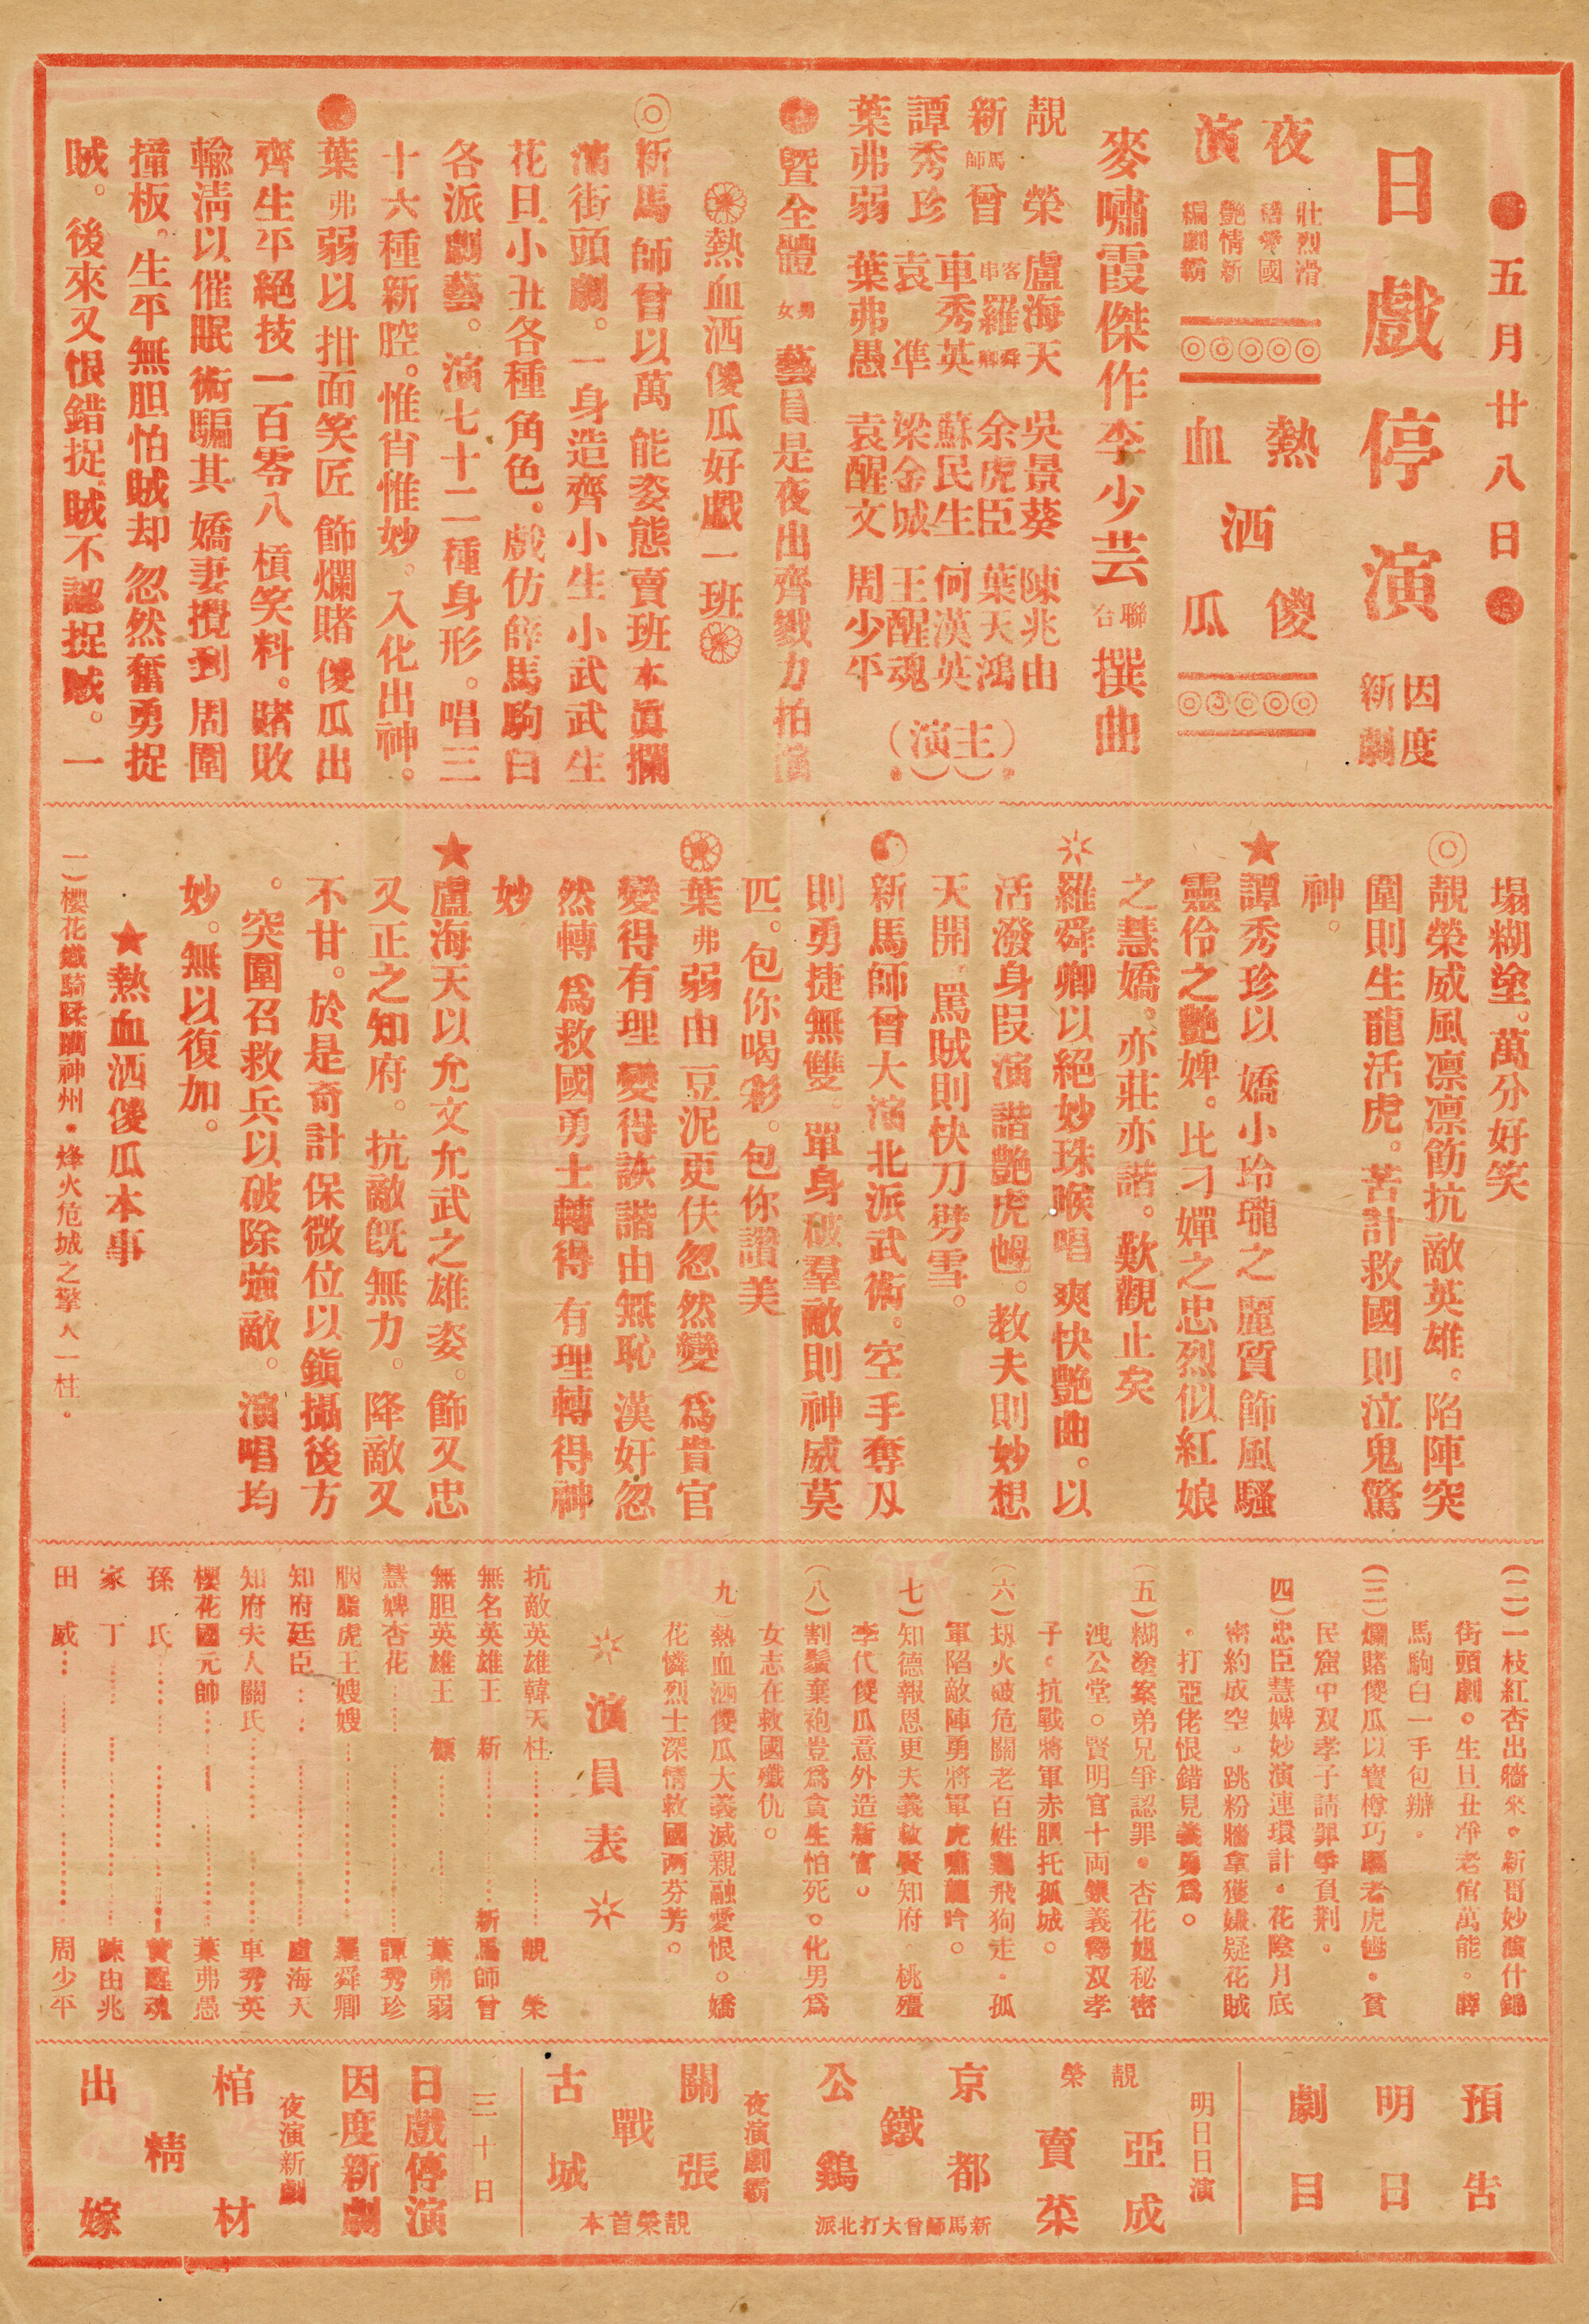 五月廿八日
日戲停演
因度
新劇
夜演
壯烈滑
稽愛國
艷情新
編劇霸
熱血洒傻瓜
麥嘯霞傑作李少芸聯合撰曲
靚榮 盧海天 吳景葵 陳兆由
新馬師曾 客串羅舜卿 余虎臣 葉天鴻
譚秀珍 車秀英 蘇民生 何漢英
袁準 梁金城 王醒魂
葉弗弱 葉弗愚 袁醒文 周少平
(主演)
暨全體男女藝員是夜出齊戮力拍演
熱血洒傻瓜好戲一班
◎新馬師曾以萬能姿態賣班本眞攔
演街頭劇。一身造齊小生小武武生
花旦小丑各種角色。戲仿薛馬駒白
各派劇藝。演七十二種身形。唱三
十六種新腔。惟肖惟妙。入化出神。
●葉弗弱以拑面笑匠飾爛賭傻瓜出
齊生平絕技一百零八槓笑料。賭敗
輸清以催眠術騙其嬌妻攪到周圍
撞板。生平無胆怕賊却忽然奮勇捉
賊。後來又恨錯捉賊不認捉賊。一
塌糊塗。萬分好笑
◎靚榮威風凛凛飾抗敵英雄。陷陣突
圍則生龍活虎。苦計救國則泣鬼驚
神。
★譚秀珍以嬌小玲瓏之麗質飾風騷
靈伶之艷婢。比刁嬋之忠烈似紅娘
之慧嬌。亦莊亦諧。歎觀止矣
羅舜卿以絕妙珠喉唱爽快艷曲。以
活潑身叚演諧艷虎乸。教夫則妙想
天開。罵賊則快刀劈雪。
新馬師曾大演北派武術。空手奪刄
則勇捷無雙。單身破羣敵則神威莫
匹。包你喝彩。包你讚美
葉弗弱由豆泥更伕忽然變為貴官
變得有理變得詼諧由無恥漢奸忽
然轉為救國勇士轉得有理轉得神
妙
★盧海天以允文允武之雄姿。飾又忠
又正之知府。抗敵旣無力。降敵又
不甘。於是奇計保微位以鎭攝後方
。突圍召救兵以破除強敵。演唱均
妙。無以復加。
★熱血洒傻瓜本事
(一)櫻花鐵騎蹂躪神州。烽火危城之擎天一柱。
(二)一枝紅杏出牆來。新哥妙演什錦
街頭劇。生旦丑净老倌萬能。薛
馬駒白一手包辦。
(三)爛賭傻瓜以寶樽巧騙老虎乸。貧
民窟中双孝子請罪爭負荆。
四)忠臣慧婢妙演連環計。花陰月底
密約成空。跳粉牆拿獲嫌疑花賊
。打亞佬恨錯見義勇為。
(五)糊塗案弟兄爭認罪。杏花姐秘密
洩公堂。賢明官十両銀義釋双孝
子。抗戰將軍赤胆托孤城。
(六)刼火破危關老百姓鷄飛狗走。孤
軍陷敵陣勇將軍虎嘯龍吟。
七)知德報恩更夫義救賢知府。桃殭
李代傻瓜意外造新官。
(八)割鬚棄袍豈為貪生怕死。化男為
女志在救國殲仇。
九)熱血洒傻瓜大義滅親融愛恨。嬌
花憐烈士深情救國両芬芳。
演員表
抗敵英雄韓天柱……靚榮
無名英雄王新……新馬師曾
無胆英雄王標……葉弗弱
慧婢杏花……譚秀珍
胭脂虎王嫂嫂……羅舜卿
知府廷臣……盧海天
知府夫人關氏……車秀英
櫻花國元帥……葉弗愚
孫氏……黃醒魂
家丁……陳由兆
田威……周少平
預告明日劇目
明日日演
靚榮
亞成賣菜
京都鐵公鷄
新馬師曾大打北派
夜演劇霸
關張戰古城
靚榮首本
三十日
日戲停演
因度新劇
夜演新劇
棺材精出嫁